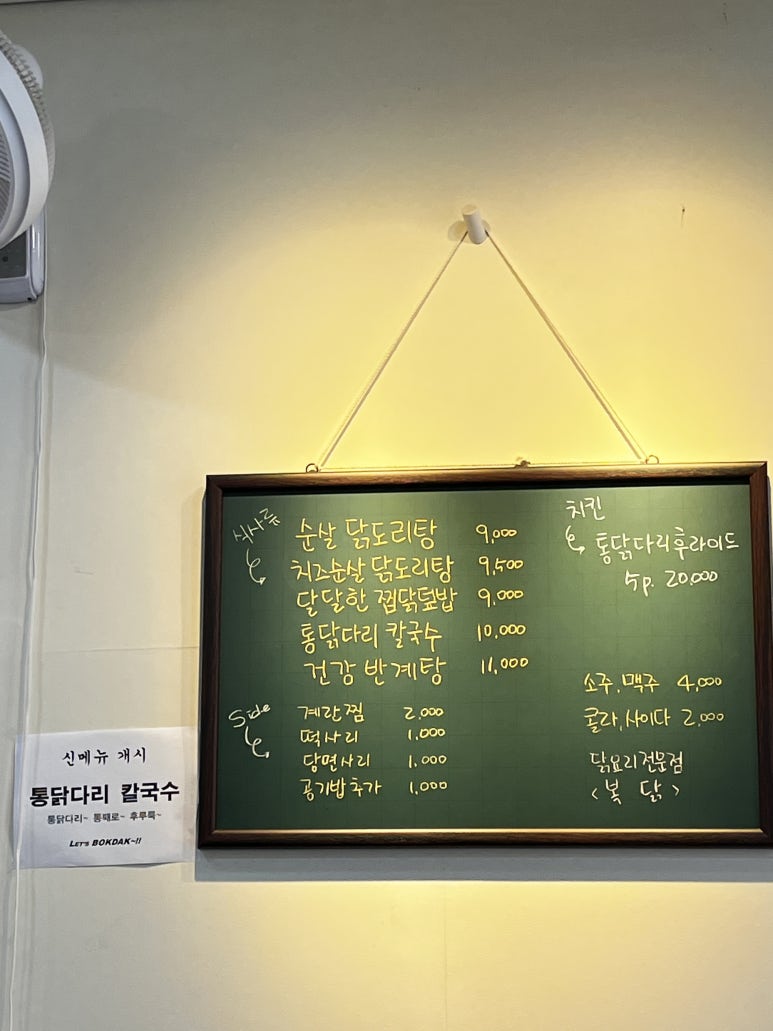 식사류
순살 닭도리탕 9,000
치즈순살 닭도리탕 9,500
달달한 찜닭덮밥 9,000
통닭다리 칼국수 10,000
건강 반계탕 11,000
Side
계란찜 2,000
떡사리 1,000
당면사리 1,000
공기밥추가 1,000
치킨
통닭다리후라이드
5p. 20,000
소주,맥주 4,000
콜라,사이다 2,000
닭요리전문점
<복 닭>
신메뉴 개시
통닭다리 칼국수
통닭다리~ 통째로~ 후루룩~
LET'S BOKDAK~!!